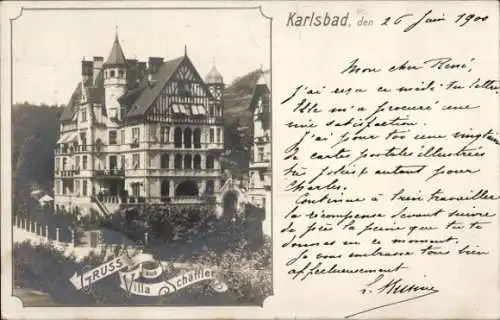 Karlsbad, den 26 Juin 1900
Mon cher René,
J'ai reçu ce midi ta lettre,
Elle m'a procuré une
vive satisfaction.
J'ai pour toi une vingtaine
de cartes postales illustrées
très jolies et autant pour
Charles.
Continue à bien travailler
la récompense devant suivre
de près la peine que tu te
donnes en ce moment.
Je vous embrasse tous bien
affectueusement
GRUSS
aus
Villa Schäffler